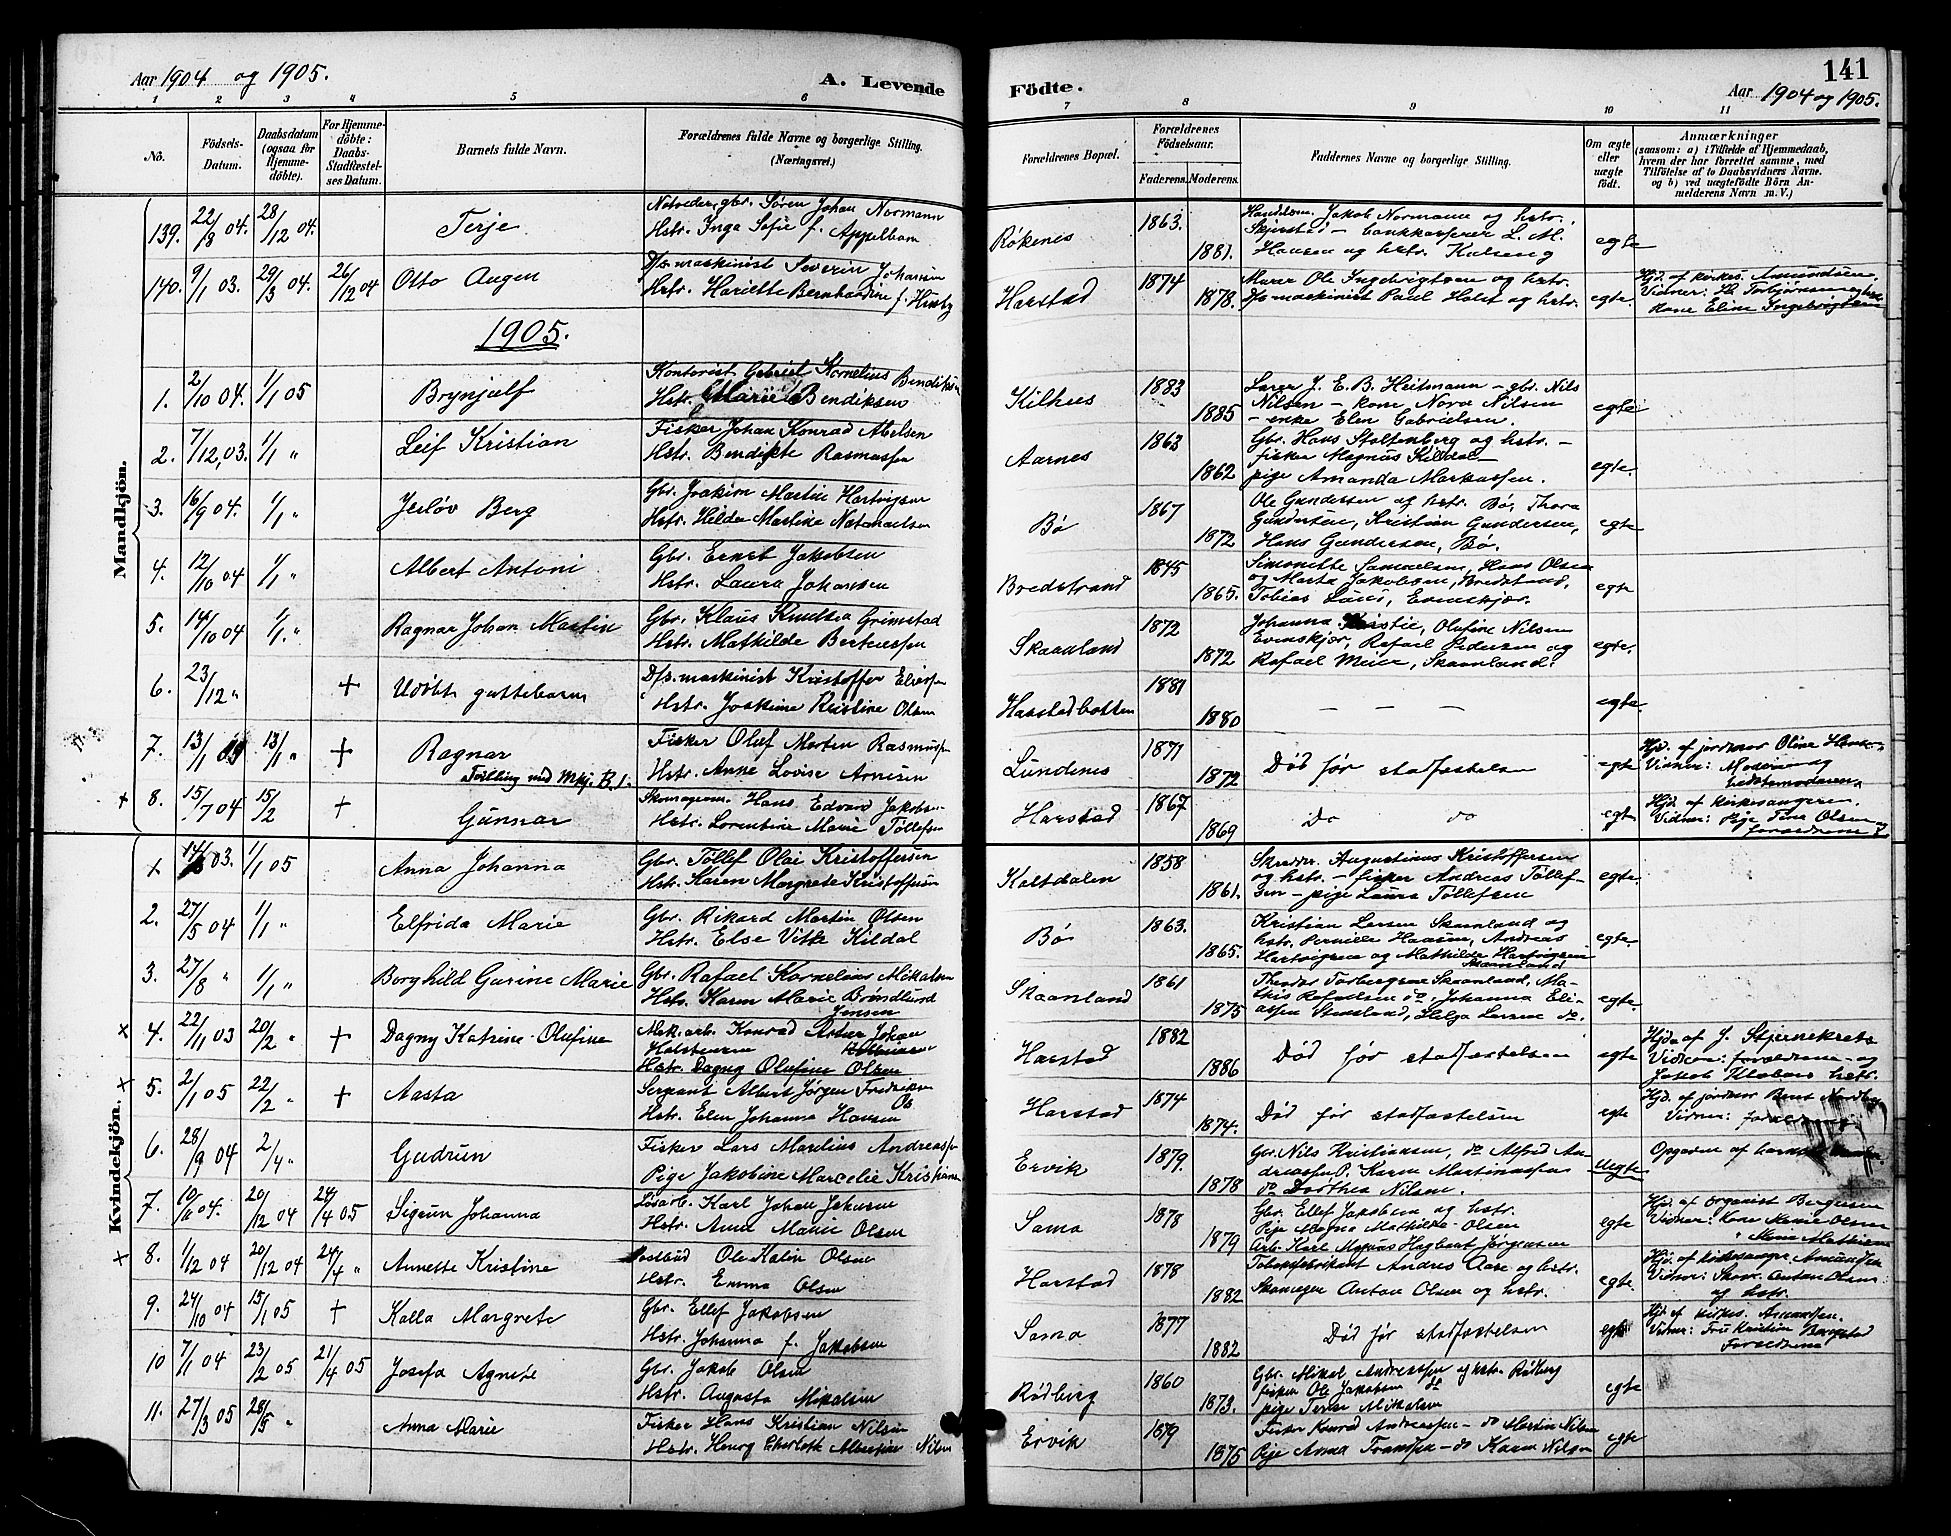 Aar 1904 og 1905.
A. Levende
1 2 3 4 5 6
Nô.
Födsels-
Datum.
Daabsdatum
(ogsaa for
Hjemme-
döbte).
For Hjemme-
döbte:
Daabs-
Stadfæstel-
ses Datum.
Barnets fulde Navn.
Forældrenes fulde Navne og borgerlige Stilling.
(Næringsvei.)
Mandkjön.
139. 22/8 04. 28/12 04. Terje
gbr. Sören Johan Normann
Hstr. Inga Sofie f. Appelbom
140. 9/1 03. 29/3 04. 26/12 04 Otto Augen
D/s. maskinist Severin Johansen
Hstr. Hariette Bernhardine f.
1905.
1. 2/10 04. 1/1 05 Brynjulf
Kontorist Gabriel Kornelius Bendiksen
Hstr. Marie Bendiksen
2. 7/12 03. 1/1 " Leif Kristian
Fisker Johan Konrad Abelsen
Hstr. Bendikte Rasmussen
3. 16/9 04. 1/1 " Jerløv Berg
Gbr. Joakim Martin Hartvigsen
Hstr. Hilda Martine Natanaelsen
4. 12/10 04 1/1 " Albert Antoni
Gbr. Ernst Jakobsen
Hstr. Laura Johansen
5. 14/10 04 1/1. " Ragnar Johan Martin
Gbr. Klaus Knutsen Grimstad
Hstr. Mathilde Berteussen
6. 23/12 " + Udöbt guttebarn
D/s. maskinist Kristoffer Eliassen
Hstr. Joakime Kristine Olsen
7. 13/1 05 13/1 " + Ragnar
Tvilling med Mkj. B. 1.
Fisker Oluf Morten Rasmussen
Hstr. Anne Lovise Arnesen
+ 8. 15/7 04 15/2 + Gunnar
Skomagerm. Hans Edvard Jakobsen
Hstr. Lorentine Marie Tollefsen
Kvindekjön.
+ 14/ 03. 1/1 05 Anna Johanna
Gbr. Tollef Olai Kristoffersen
Hstr. Karen Margrete Kristoffersen
2. 27/5 04 1/1 " Elfrida Marie
Gbr. Rikard Martin Olsen
Hstr. Else Kildal
3. 27/8 " 1/1 " Borghild Gurine Marie
Gbr. Rafael Kornelius Mikalsen
Hstr. Karen Marie Brøndlund
Jensen
x 4. 22/11 03 20/2 " + Dagny Katrine Olufine
Mek. arb. Konrad Artur Johan
Hstr. Dagny Olufine Olsen
+ 5. 2/1 05 22/2 " + Aasta
Sergeant Albert Jørgen Fredriksen
Hstr. Elen Johanna Hansen
6. 28/9 04 2/4 " Gudrun
Fisker Lars Marelius Andreassen
Pige Jakobine Marcelie Kristiansen
7. 10/11 04. 20/12 04 24/4 05 Sigrun Johanna
Løsarb. Karl Johan Jensen
Hstr. Anna Marie Olsen
+ 8. 1/12 04 20/12 04 24/4 " Annette Kristine
Postbud Ole Olsen
Hstr. Emma Olsen
9. 24/10 04 15/1 05 + Kalla Margrete
Gbr. Ellef Jakobsen
Hstr. Johanna f. Jakobsen
10 7/1 04 23/2 05 21/4 05 Josefa Agnete
Gbr. Jakob Olsen
Hstr. Augusta Mikalsen
11. 27/3 05 28/5 " Anna Marie
Fisker Hans Kristian Nilsen
Hstr. Henry Charlotte Nilsen
141
Födte.
Aar 1904 og 1905.
7 8 9 10 11
Forældrenes Bopæl.
Forældrenes
Födselsaar.
Faderens. Moderens.
Faddernes Navne og borgerlige Stilling.
Om ægte
eller
uægte
födt.
Anmærkninger
(saasom: a) i Tilfælde af Hjemmedaab,
hvem der har forrettet samme, med
Tilföielse af to Daabsvidners Navne.
og b) ved uægtefödte Börn An-
melderens Navn m. V.)
Røkenes 1863. 1881.
Handelsm. Jakob Normann og hstr.
Skjerstad – bankkasserer L. M.
Hansen og hstr. Kulseng
egte
Harstad 1874 1878.
Murer Ole Ingebrigtsen og hstr.
D/s maskinist Paul Holst og hstr.
egte.
Hjd. af kirkes. Amundsen.
Vidner: Torbjørnsen og
Kone Eline Ingebrigtsen
Kilhus 1883 1885
Lærer J. E. B. Heitmann – gbr. Nils
Nilsen – kone Nora Nilsen
– enke Elen Gabrielsen.
egte
Aarnes 1863 1862
Gbr. Hans Stoltenberg og hstr. –
fisker Magnus Kildal –
pige Amanda Markussen.
egte.
Bø 1867 1872
Ole Gundersen og hstr. Bø, Thora
Gundersen, Kristian Gundersen,
Hans Gundersen, Bø.
egte
Bredstrand 1845 1865.
Simonette Samuelsen, Hans Olsen
og Marta Jakobsen, Bredstrand,
Tobias Lund, Evenskjær.
egte
Skaanland 1872 1872
Johanna Olufine Nilsen
Evenskjær, Rafael Pedersen og
Rafael Meier, Skaanland.
egte.
Harstadbotten 1881 1880
– – –
egte.
Lundenes 1871 1872
Død før stadfæstelsen
egte
Hjd. af jordmor Oline
Vidner: Moderen og
bedstemoderen.
Harstad 1867 1869
Do do
egte
Hjd. af kirkesangeren.
Vidner: Pige Tina Olsen og
forældrene
Kaltdalen 1858 1861.
Skrædder Augustinus Kristoffersen
og hstr. – fisker Andreas Tollef-
sen – pige Laura Tollefsen
egte.
Bø 1863. 1865.
Kristian Larsen Skaanland og
hstr. Pernille Hansen, Andreas
Hartvigsen og Mathilde Hartvigsen
Skaanland
egte
Skaanland 1861 1875
Theodor Torbergsen Skaanland, Ma-
this Rafaelsen do, Johanna Eli-
assen Skaanland, Helga Larsen do.
egte.
Harstad 1882 1886
Død før stadfæstelsen
egte
Hjd. af J. Stjernekrets
Vidner: forældrene og
Jakob Klabos hstr.
Harstad 1874 1874.
Død før stadfæstelsen
egte
Hjd. af jordmor Beret Nordby
Vidner:
Ervik 1879. 1878
Gbr. Nils Kristiansen, do Alfred An-
dreassen P. Karen Martinussen
do Dorthea Nilsen.
Uegte
Opgaven af barnets
Sama 1878 1879
Gbr. Ellef Jakobsen og hstr.
Pige Magna Mathilde Olsen
Arb. Karl Magnus Hagbart Jørgensen
egte
Hjd. af organist Bergersen
Vidner: Kone Marie Olsen
" Marie Mathisen
Harstad 1878 1882
Tobaksfabrikant Andres Aase og hstr.
Skomager Anton Olsen og hstr.
egte.
Hjd. af kirkesanger Amundsen
Vidner: Skom. Anton Olsen
og hstr.
Sama 1877 1882
Død før stadfæstelsen
egte
Hjd. af kirkes. Amundsen.
Vidner: Fru Kristine
Forældrene
Rødberg 1860 1873.
Gbr. Mikal Andreassen og hstr. Rødberg
fisker Ole Jakobsen do
pige Mikkelsen
egte
Ervik 1879 1875
Fisker Konrad Andreassen – do Martin Nilsen
Pige Anna Fransen – do Karen Nilsen
egte